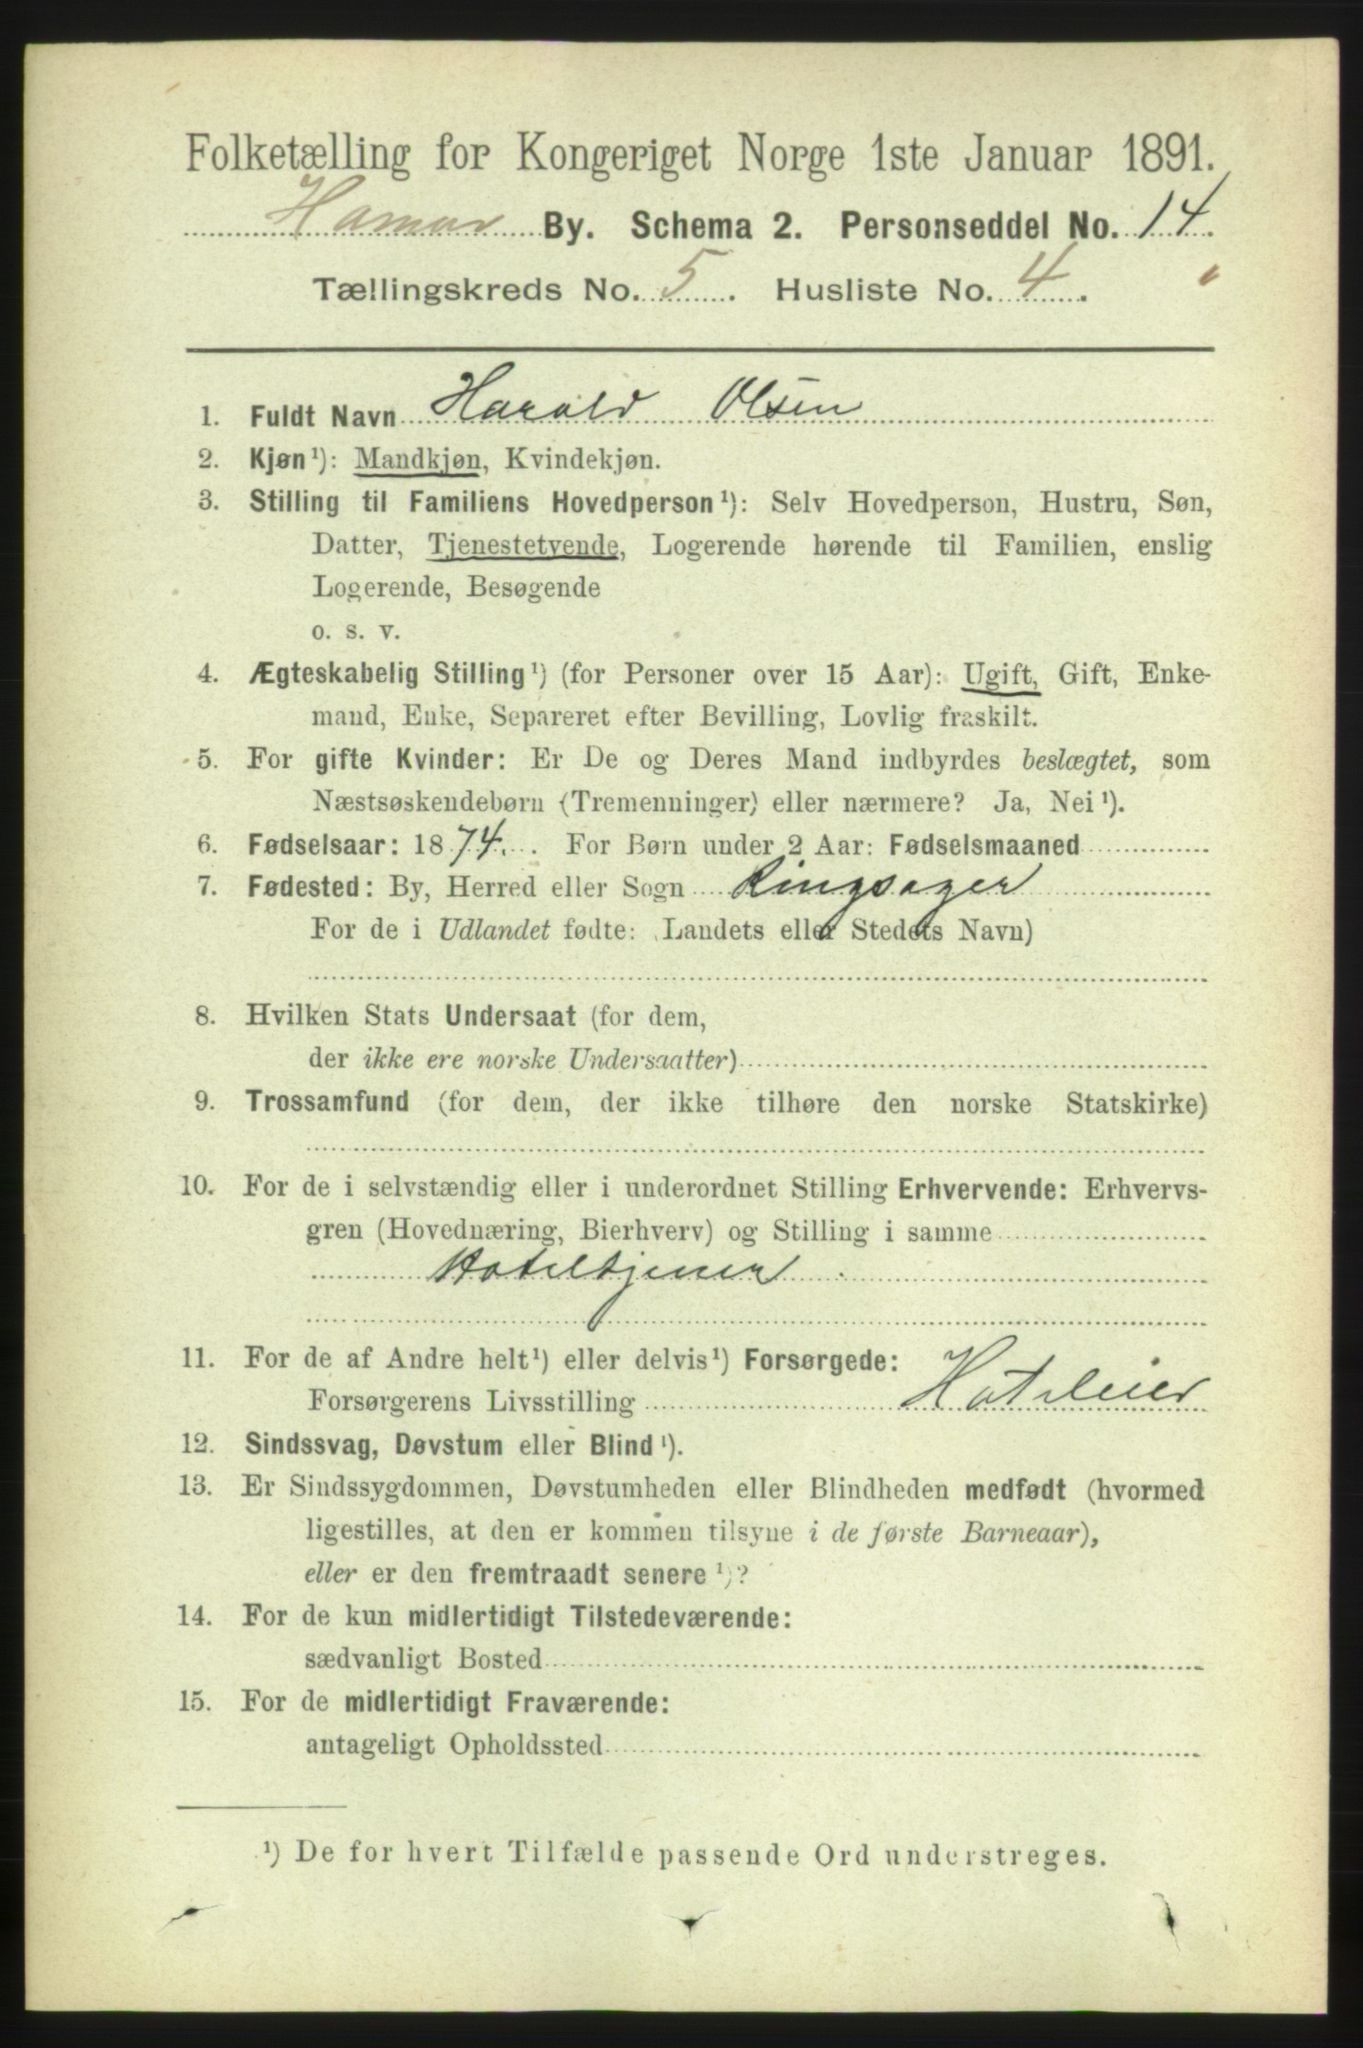 Folketælling for Kongeriget Norge 1ste Januar 1891.
Hamar By. Schema 2. Personseddel No. 14.
Tællingskreds No. 5. Husliste No. 4.
1. Fuldt Navn Harald Olsen
2. Kjøn¹): Mandkjøn, Kvindekjøn.
3. Stilling til Familiens Hovedperson¹): Selv Hovedperson, Hustru, Søn,
Datter, Tjenestetyende, Logerende hørende til Familien, enslig
Logerende, Besøgende
o. s. v.
4. Ægteskabelig Stilling¹) (for Personer over 15 Aar): Ugift, Gift, Enke-
mand, Enke, Separeret efter Bevilling, Lovlig fraskilt.
5. For gifte Kvinder: Er De og Deres Mand indbyrdes beslægtet, som
Næstsøskendebørn (Tremenninger) eller nærmere? Ja, Nei¹).
6. Fødselsaar: 1874. . For Børn under 2 Aar: Fødselsmaaned
7. Fødested: By, Herred eller Sogn Ringsager
For de i Udlandet fødte: Landets eller Stedets Navn)
8. Hvilken Stats Undersaat (for dem,
der ikke ere norske Undersaatter)
9. Trossamfund (for dem, der ikke tilhøre den norske Statskirke)
10. For de i selvstændig eller i underordnet Stilling Erhvervende: Erhvervs-
gren (Hovednæring, Bierhverv) og Stilling i samme
Hoteltjener
11. For de af Andre helt¹) eller delvis¹) Forsørgede:
Forsørgerens Livsstilling Hoteleier
12. Sindssvag, Døvstum eller Blind¹).
13. Er Sindssygdommen, Døvstumheden eller Blindheden medfødt (hvormed
ligestilles, at den er kommen tilsyne i de første Barneaar),
eller er den fremtraadt senere¹)?
14. For de kun midlertidigt Tilstedeværende:
sædvanligt Bosted
15. For de midlertidigt Fraværende:
antageligt Opholdssted
¹) De for hvert Tilfælde passende Ord understreges.